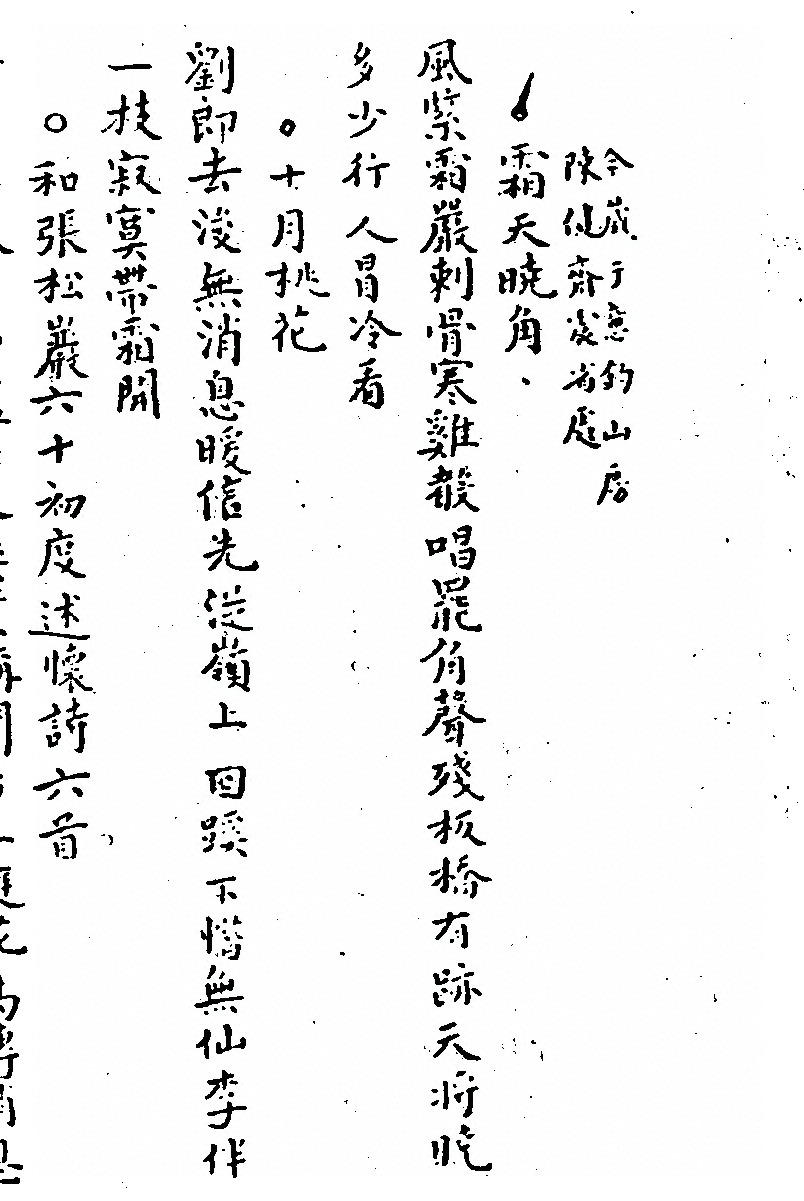 今歲于意釣山房
陳健齋處省歷
霜天曉角、
風紫霜嚴刺骨寒雞聲唱罷角聲殘板橋有跡天將曉
多少行人冒冷看
十月桃花
劉郎去後無消息暖信先從嶺上回蹊下惜無仙李伴
一枝寂寞帶霜開
和張松巖六十初度述懷詩六首